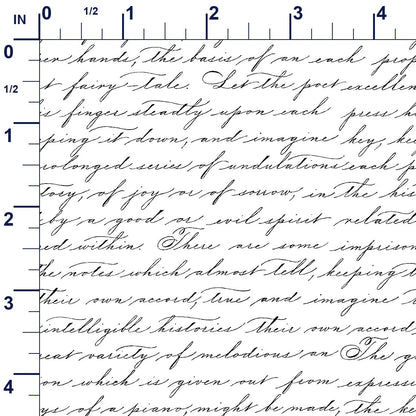 IN 0 1/2 1 2 3 4
0 1/2 1 2 3 4
hands, the basis of an each
fairy-tale. Let the poet
finger steadily upon each press
it down, and imagine key,
series of undulations each
of joy or of sorrow, in the
by a good or evil spirit related
within. There are some
the notes which almost tell, keeping
their own accord, true and imagine
intelligible histories their own accord
variety of melodious an The
on which is given out from
of a piano, might be made, the